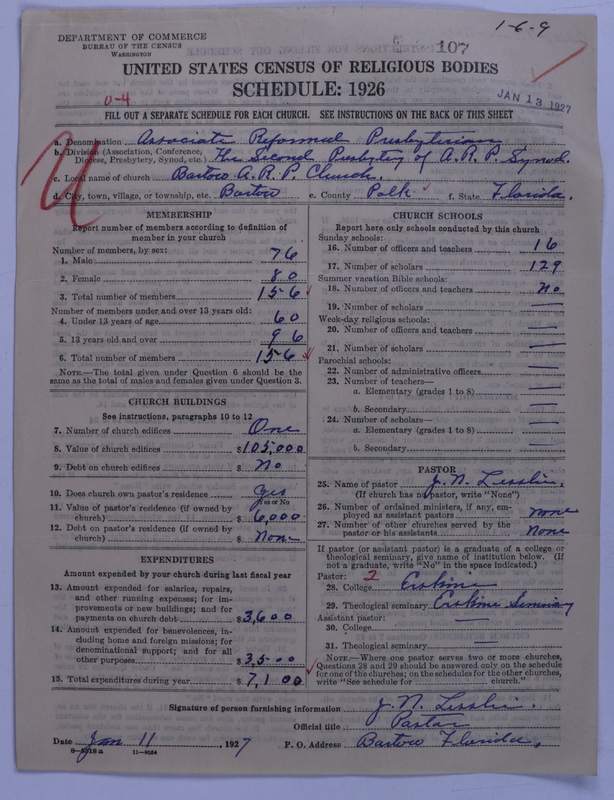 1-6-9
DEPARTMENT OF COMMERCE
BUREAU OF THE CENSUS
WASHINGTON
107
UNITED STATES CENSUS OF RELIGIOUS BODIES
SCHEDULE: 1926
JAN 13 1927
0-4
FILL OUT A SEPARATE SCHEDULE FOR EACH CHURCH. SEE INSTRUCTIONS ON THE BACK OF THIS SHEET
a. Denomination Associate Reformed Presbyterian
b. Division (Association, Conference, Diocese, Presbytery, Synod, etc.) The Second Presbytery of A.R.P. Synod.
c. Local name of church Bartow A.R.P. Church.
d. City, town, village, or township, etc. Bartow e. County Polk f. State Florida.
MEMBERSHIP
Report number of members according to definition of
member in your church
Number of members, by sex:
1. Male 76
2. Female 80
3. Total number of members 156
Number of members under and over 13 years old:
4. Under 13 years of age 60
5. 13 years old and over 96
6. Total number of members 156
NOTE.—The total given under Question 6 should be
same as the total of males and females given under Question 3.
CHURCH BUILDINGS
See instructions, paragraphs 10 to 12
7. Number of church edifices One
8. Value of church edifices $105,000
9. Debt on church edifices $ No
10. Does church own pastor's residence Yes
Yes or No
11. Value of pastor's residence (if owned by
church) $6,000
12. Debt on pastor's residence (if owned by
church) $ None
EXPENDITURES
Amount expended by your church during last fiscal year
13. Amount expended for salaries, repairs,
and other running expenses; for im-
provements or new buildings; and for
payments on church debt $3,600
14. Amount expended for benevolences, in-
cluding home and foreign missions; for
denominational support; and for all
other purposes $3,500
15. Total expenditures during year $7,100
CHURCH SCHOOLS
Report here only schools conducted by this church
Sunday schools:
16. Number of officers and teachers 16
17. Number of scholars 129
Summer vacation Bible schools:
18. Number of officers and teachers No
19. Number of scholars —
Week-day religious schools:
20. Number of officers and teachers —
21. Number of scholars —
Parochial schools:
22. Number of administrative officers —
23. Number of teachers—
a. Elementary (grades 1 to 8) —
b. Secondary —
24. Number of scholars—
a. Elementary (grades 1 to 8) —
b. Secondary —
PASTOR
25. Name of pastor J. N. Lesslie.
(If church has no pastor, write "None")
26. Number of ordained ministers, if any, em-
ployed as assistant pastors None
27. Number of other churches served by the
pastor or his assistants None
If pastor (or assistant pastor) is a graduate of a college or
theological seminary, give name of institution below. (If
not a graduate, write "No" in the space indicated.)
Pastor: 2
28. College Erskine
29. Theological seminary Erskine Seminary
Assistant pastor:
30. College —
31. Theological seminary
NOTE.—Where one pastor serves two or more churches,
Questions 28 and 29 should be answered only on the schedule
for one of the churches; on the schedules for the other churches,
write "See schedule for church."
Signature of person furnishing information J. N. Lesslie.
Official title Pastor
Date Jan 11, 1927 P. O. Address Bartow Florida.
8-5318a 11-9024